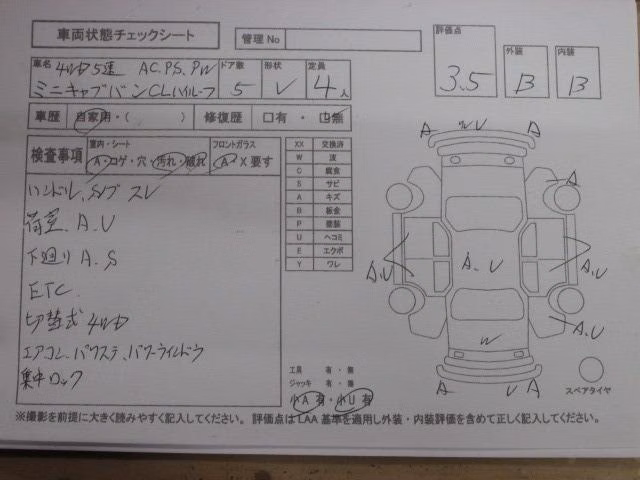 車両状態チェックシート
管理No
評価点 3.5
外装 B
内装 B
車名 4WD 5速 AC.PS.PW
ミニキャブバンCLハイルーフ
ドア数 5
形状 V
定員 4人
車歴 自家用・( )
修復歴 □有・□無
検査事項
室内・シート
A・コゲ・穴・汚れ・破れ
フロントガラス
A・X要す
ハンドル、S/ブ スレ
荷室、A.U
下廻り A.S
ETC
切替式 4WD
エアコン、パワステ、パワーウインドウ
集中ロック
XX 交換済
W 波
C 腐食
S サビ
A キズ
B 板金
P 塗装
U ヘコミ
E エクボ
Y ワレ
工具 有・無
ジャッキ 有・無
小A有・小U有
A W U A
A
A.U
A.U
A.U
A.U
W
A U A
スペアタイヤ
※撮影を前提に大きく読みやすく記入してください。評価点はLAA基準を適用し外装・内装評価を含めて正しく記入してください。